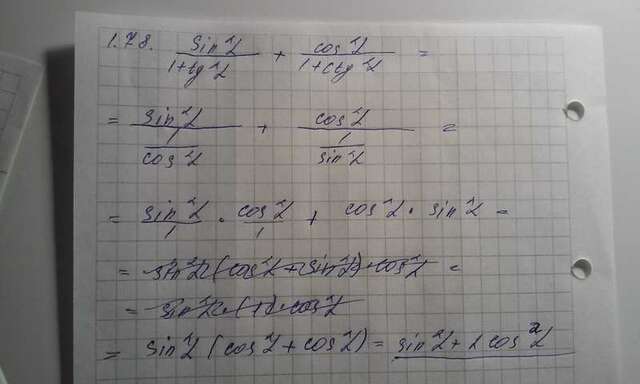 1.78. sin²α / (1+tg²α) + cos²α / (1+ctg²α) =
= sin²α / (1 / cos²α) + cos²α / (1 / sin²α) =
= sin²α / 1 · cos²α / 1 + cos²α · sin²α =
= sin²α (cos²α + sin²α) · cos²α =
= sin²α · (1) · cos²α
= sin²α (cos²α + cos²α) = sin²α + 2 cos²α